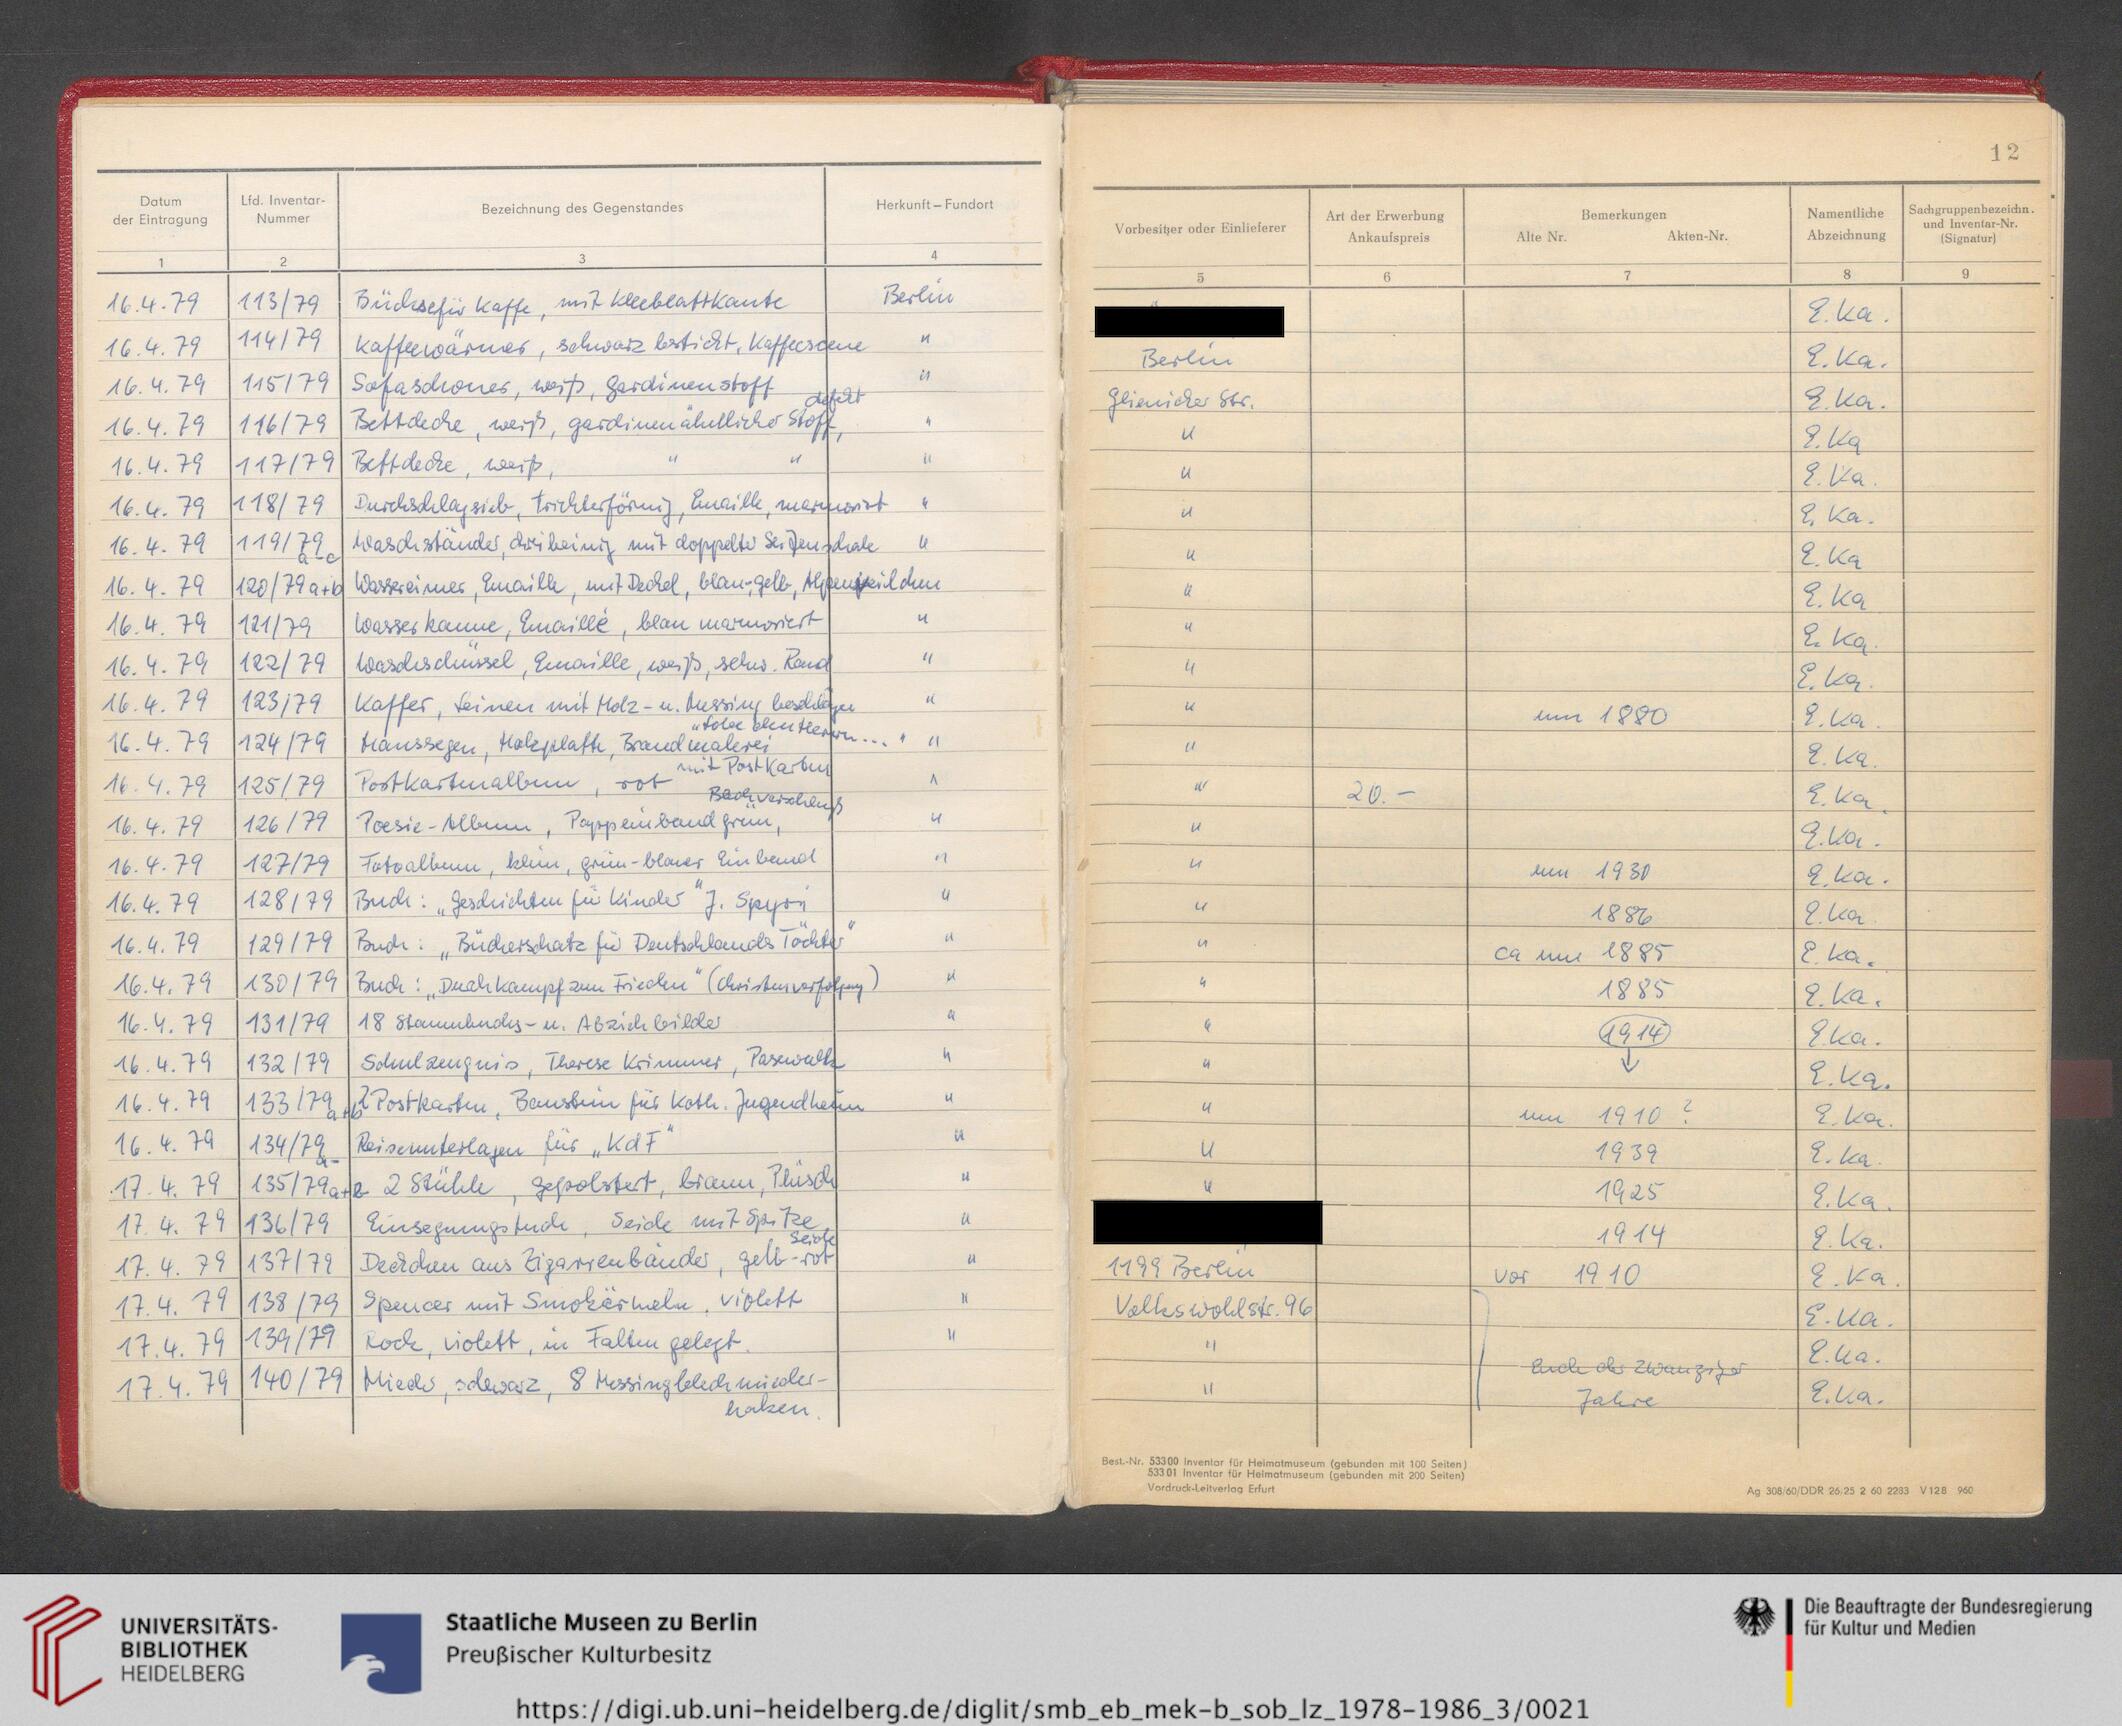 12
Datum der Eintragung | Lfd. Inventar-Nummer | Bezeichnung des Gegenstandes | Herkunft – Fundort | Vorbesitzer oder Einlieferer | Art der Erwerbung Ankaufspreis | Bemerkungen Alte Nr. Akten-Nr. | Namentliche Abzeichnung | Sachgruppenbezeichn. und Inventar-Nr. (Signatur)
1 | 2 | 3 | 4 | 5 | 6 | 7 | 8 | 9
16.4.79 | 113/79 | Büchse für Kaffe, mit Kleeblattkante | Berlin | E.Ka.
16.4.79 | 114/79 | Kaffeewärmer, schwarz bestickt, Kaffeescene | " | Berlin | E.Ka.
16.4.79 | 115/79 | Sofaschoner, weiß, Gardinenstoff | " | Glienicker Str. | E.Ka.
16.4.79 | 116/79 | Bettdecke, weiß, gardinenähnlicher Stoff, defekt | " | " | E.Ka
16.4.79 | 117/79 | Bettdecke, weiß, " " | " | " | E.Ka.
16.4.79 | 118/79 | Durchschlagsieb, trichterförmig, Emaille, marmoriert | " | " | E.Ka.
16.4.79 | 119/79 a-c | Waschständer, dreibeinig mit doppelter Seifenschale | " | " | E.Ka
16.4.79 | 120/79 a+b | Wassereimer, Emaille, mit Deckel, blau-gelb, Alpenveilchen | " | E.Ka
16.4.79 | 121/79 | Wasserkanne, Emaille, blau marmoriert | " | " | E.Ka.
16.4.79 | 122/79 | Waschschüssel, Emaille, weiß, schw. Rand | " | " | E.Ka.
16.4.79 | 123/79 | Koffer, Leinen mit Holz- u. Messing beschlägen | " | " | um 1880 | E.Ka.
16.4.79 | 124/79 | Haussegen, Holzplatte, Brandmalerei "Lobe den Herrn..." | " | " | E.Ka.
16.4.79 | 125/79 | Postkartenalbum, rot mit Postkarten | " | " | 20.- | E.Ka.
16.4.79 | 126/79 | Poesie-Album, Pappeinband grün, | " | " | E.Ka.
16.4.79 | 127/79 | Fotoalbum, klein, grün-blauer Einband | " | " | um 1930 | E.Ka.
16.4.79 | 128/79 | Buch: „Geschichten für Kinder" J. Spyri | " | " | 1886 | E.Ka.
16.4.79 | 129/79 | Buch: „Bücherschatz für Deutschlands Töchter" | " | " | ca um 1885 | E.Ka.
16.4.79 | 130/79 | Buch: „Durch Kampf zum Frieden" (Christenverfolgung) | " | " | 1885 | E.Ka.
16.4.79 | 131/79 | 18 Stammbuchs- u. Abziehbilder | " | " | 1914 | E.Ka.
16.4.79 | 132/79 | Schulzeugnis, Therese Krimmer, Pasewalk | " | " | ↓ | E.Ka.
16.4.79 | 133/79 a+b | 2 Postkarten, Baustein für Kath. Jugendheim | " | " | um 1910 ? | E.Ka.
16.4.79 | 134/79 a- | Reiseunterlagen für „KdF" | " | " | 1939 | E.Ka.
17.4.79 | 135/79 a+b | 2 Stühle, gepolstert, braun, Plüsch | " | " | 1925 | E.Ka.
17.4.79 | 136/79 | Einsegnungstuch, Seide mit Spitze | " | 1914 | E.Ka.
17.4.79 | 137/79 | Deckchen aus Zigarrenbänder, gelb-rot Seide | " | 1199 Berlin | vor 1910 | E.Ka.
17.4.79 | 138/79 | Spencer mit Smokärmeln, violett | " | Volkswohlstr. 96 | E.Ka.
17.4.79 | 139/79 | Rock, violett, in Falten gelegt. | " | " | Ende der Zwanziger | E.Ka.
17.4.79 | 140/79 | Mieder, schwarz, 8 Messingblechmieder-haken. | " | Jahre | E.Ka.
Best.-Nr. 53300 Inventar für Heimatmuseum (gebunden mit 100 Seiten)
53301 Inventar für Heimatmuseum (gebunden mit 200 Seiten)
Vordruck-Leitverlag Erfurt
Ag 308/60/DDR 26/25 2 60 2283 V128 960
UNIVERSITÄTS-
BIBLIOTHEK
HEIDELBERG
Staatliche Museen zu Berlin
Preußischer Kulturbesitz
Die Beauftragte der Bundesregierung
für Kultur und Medien
https://digi.ub.uni-heidelberg.de/diglit/smb_eb_mek-b_sob_lz_1978-1986_3/0021